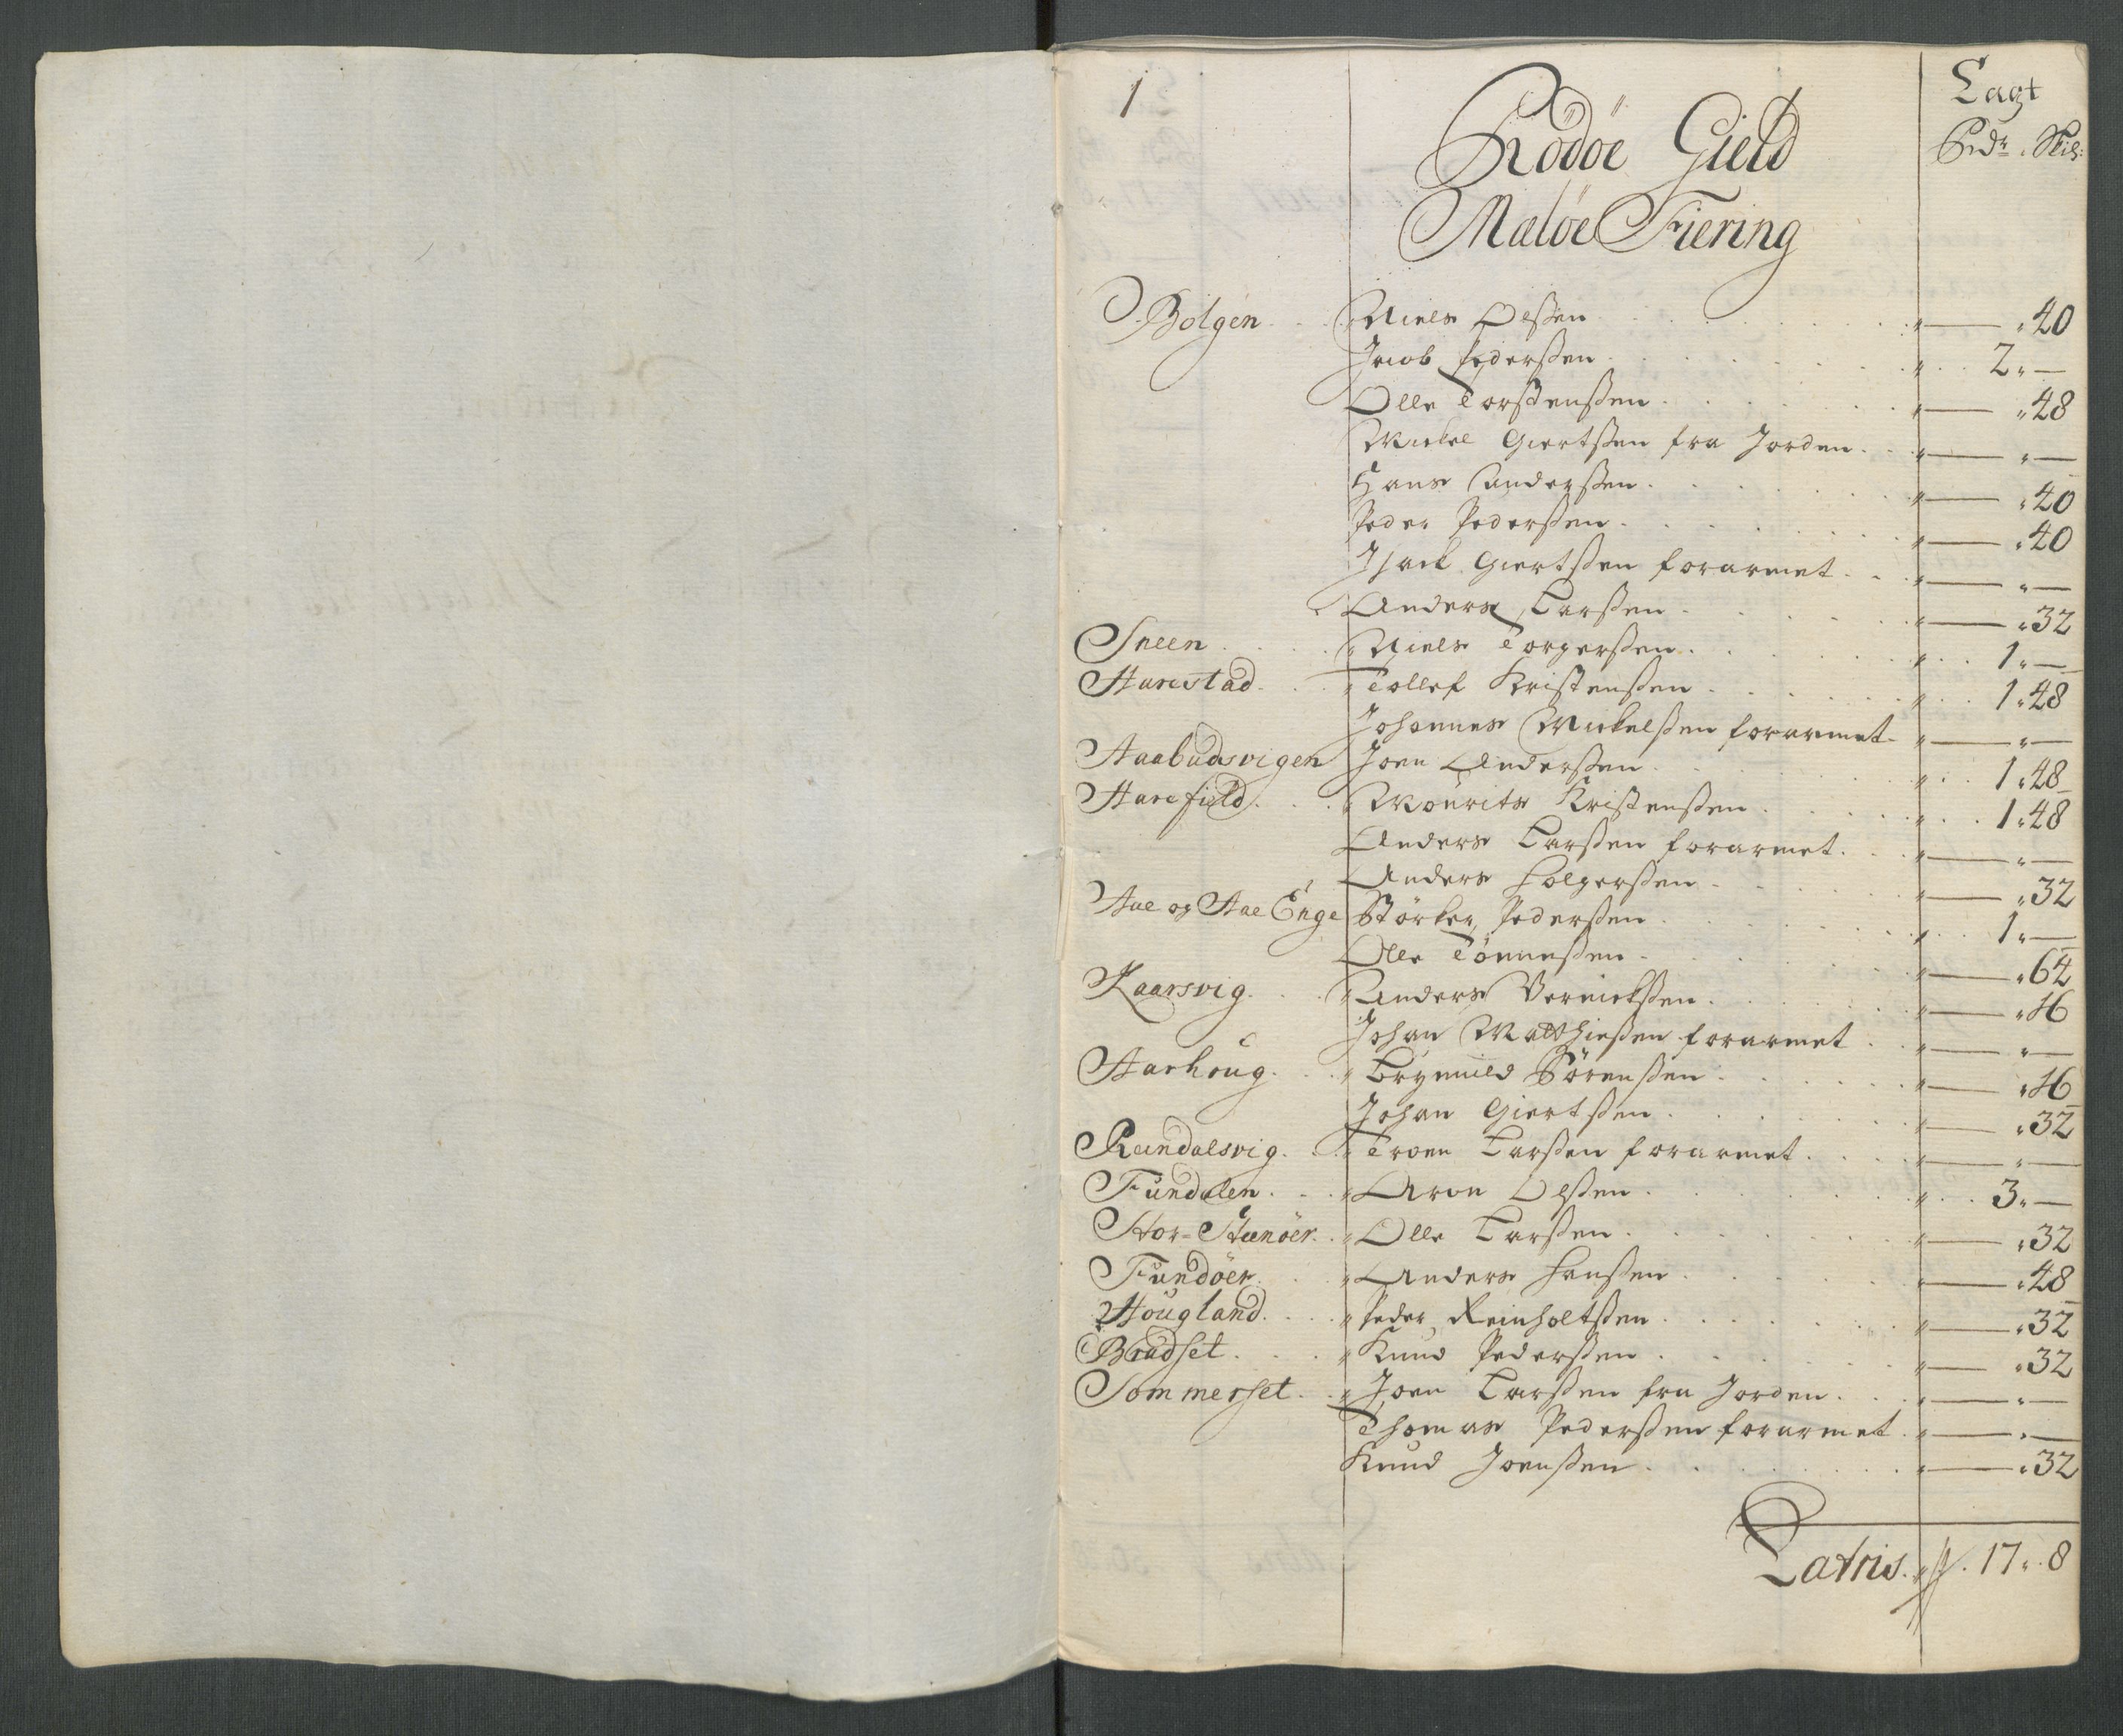 1
Lagt
Rdr. Skil:
Rödöe Gield
Maløe Fiering
Bolgen . . Niels Olsßen . . . " — " 40
Jacob Pederßen . . . " . . 2 " —
Olle Torstensßen . . . " — " 48
Mickel Giertsßen fra Jorden . " — " —
Hans Anderßen . . . " — " 40
Peder Pederßen . . . " — " 40
Isack Giertsßen forarmet . . " — " —
Anders Larsßen . . . " — " 32
Sneen . . . Niels Torgersßen . . . " . . 1 " —
Harestad . . " Tollef Kristensßen . . . " . . 1 " 48
Johannes Mickelsßen forarmet " — " —
Aabudsvigen Joen Anderßen . . . " . . 1 " 48
Harefield . . . Mourits Kristensßen . . . " . . 1 " 48
Anders Larsßen forarmet . . " — " —
Anders Holgersßen . . . " — " 32
Aae og Aae Enge Störker Pederßen . . . " . . 1 " —
Olle Tönnesßen . . . " — " 64
Kaarsvig . . . " Anders Vernicksßen . . . " — " 16
Johan Matthiesßen forarmet . . " — " —
Aarhoug . . . " Brynnild Sörensßen . . . " — " 16
Johan Giertsßen . . . " — " 32
Rendalsvig . . " Troen Larsßen forarmet . . . " — " —
Fundalen . . . " Aron Olsßen . . . " . . 3 " —
Stor-Stenöer . . " Olle Larsßen . . . " — " 32
Fundöer . . . " Anders Hansßen . . . " — " 48
Hougland . . . " Peder Reinholtsßen . . . " — " 32
Bradset . . . " Knud Pederßen . . . " — " 32
Sommerset . . " Joen Larsßen fra Jorden . . " — " —
Thomas Pederßen forarmet . " — " —
Knud Joensßen . . . " — " 32
Latris . " 17 " 8